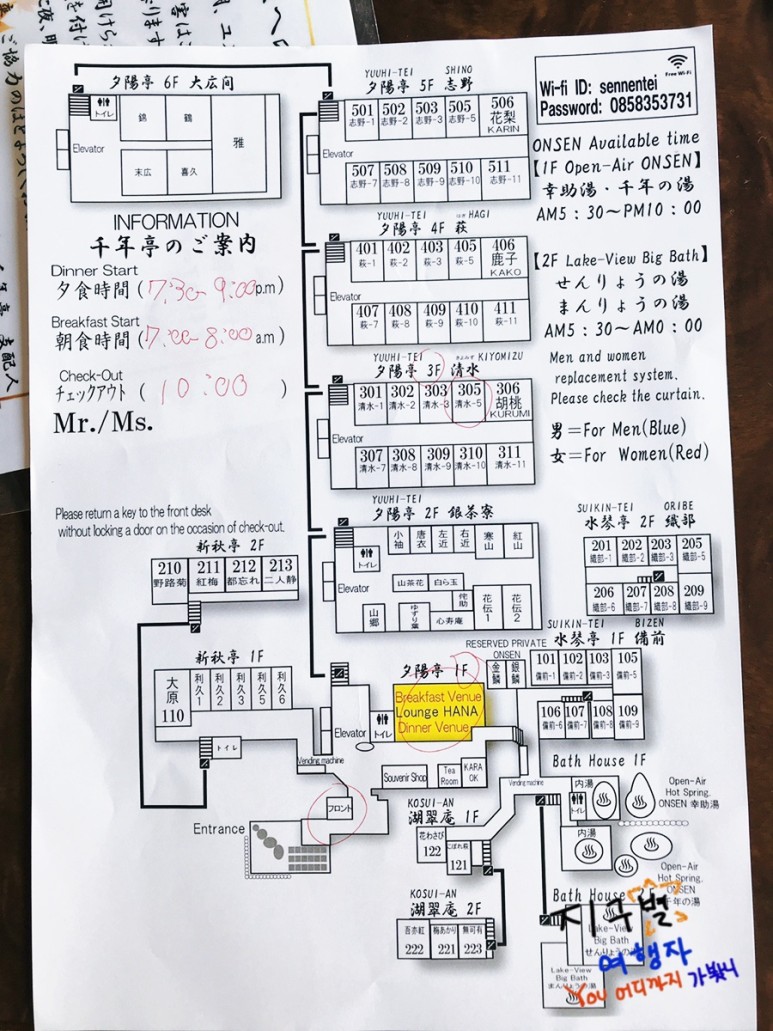 夕陽亭 6F 大広間
トイレ
錦
鶴
雅
末広
喜久
Elevator
INFORMATION
千年亭のご案内
Dinner Start
夕食時間 ( 7:30~9:00 p.m)
Breakfast Start
朝食時間 ( 7:00~8:00 a.m)
Check-Out
チェックアウト ( 10:00 )
Mr./Ms.
Please return a key to the front desk
without locking a door on the occasion of check-out.
YUUHI-TEI SHINO
夕陽亭 5F 志野
501 502 503 505 506
志野-1 志野-2 志野-3 志野-5 花梨
KARIN
Elevator
507 508 509 510 511
志野-7 志野-8 志野-9 志野-10 志野-11
YUUHI-TEI HAGI
夕陽亭 4F 萩
401 402 403 405 406
萩-1 萩-2 萩-3 萩-5 鹿子
KAKO
Elevator
407 408 409 410 411
萩-7 萩-8 萩-9 萩-10 萩-11
YUUHI-TEI きよみず KIYOMIZU
夕陽亭 3F 清水
301 302 303 305 306
清水-1 清水-2 清水-3 清水-5 胡桃
KURUMI
Elevator
307 308 309 310 311
清水-7 清水-8 清水-9 清水-10 清水-11
YUUHI-TEI
夕陽亭 2F 銀茶寮
トイレ
小袖
唐衣
左近
右近
寒山
紅山
Elevator
山茶花
白ら玉
侘助
花伝1
花伝2
山郷
ゆずり葉
心寿庵
Free Wi-Fi
Wi-fi ID: sennentei
Password: 0858353731
ONSEN Available time
【1F Open-Air ONSEN】
幸助湯・千年の湯
AM5:30~PM10:00
【2F Lake-View Big Bath】
せんりょうの湯
まんりょうの湯
AM5:30~AM0:00
Men and women
replacement system.
Please check the curtain.
男=For Men(Blue)
女=For Women(Red)
SUIKIN-TEI ORIBE
水琴亭 2F 織部
201 202 203 205
織部-1 織部-2 織部-3 織部-5
206 207 208 209
織部-6 織部-7 織部-8 織部-9
SUIKIN-TEI BIZEN
水琴亭 1F 備前
RESERVED PRIVATE
ONSEN
金鱗
銀鱗
101 102 103 105
備前-1 備前-2 備前-3 備前-5
106 107 108 109
備前-6 備前-7 備前-8 備前-9
新秋亭 2F
210 211 212 213
野路菊 紅梅 都忘れ 二人静
新秋亭 1F
大原
110
利久1
利久2
利久3
利久5
利久6
トイレ
夕陽亭 1F
Breakfast Venue
Lounge HANA
Dinner Venue
トイレ
Elevator
Vending machine
Souvenir Shop
Tea Room
KARA OK
Vending machine
フロント
Entrance
KOSUI-AN
湖翠庵 1F
花わさび
122
こぼれ萩
121
KOSUI-AN
湖翠庵 2F
吾亦紅 梅あかり 無可有
222 221 223
Bath House 1F
内湯
トイレ
Open-Air
Hot Spring.
ONSEN 幸助湯
内湯
Open-Air
Hot Spring.
ONSEN
千年の湯
Bath House
Lake-View
Big Bath
せんりょうの湯
Lake-View
Big Bath
まんりょうの湯
지구별
여행자
You 어디까지 가봤니